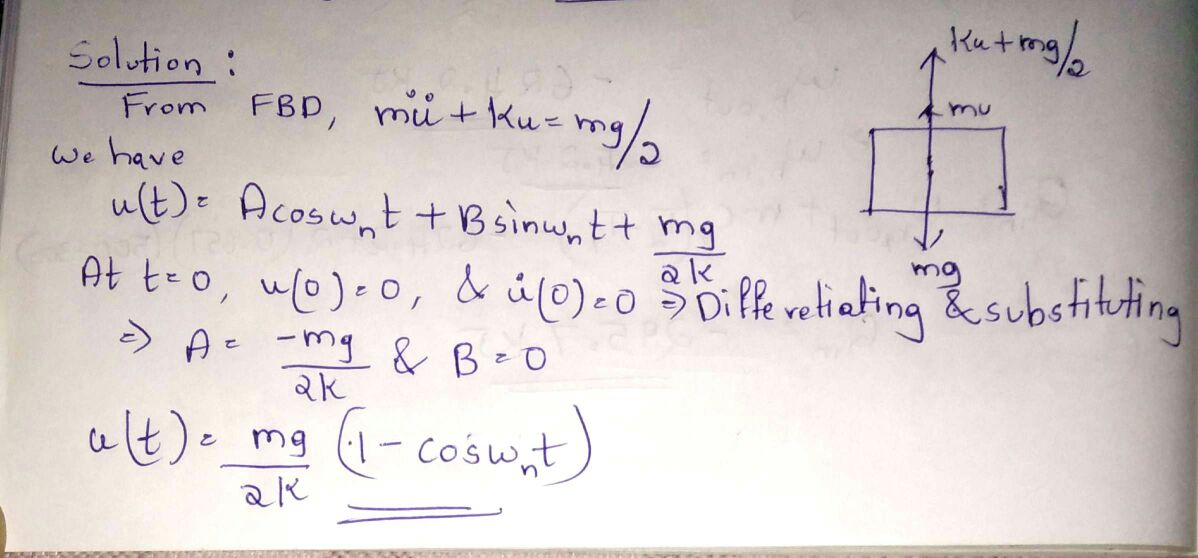 Solution :
From FBD, mü + Ku = mg/2
We have
u(t) = A cosωₙt + B sinωₙt + mg/2K
At t=0, u(0)=0, & u̇(0)=0 ⇒ Differetiating & substituting
⇒ A = -mg/2K & B=0
u(t) = mg/2K (1 - cosωₙt)
Ku + mg/2
mu
mg